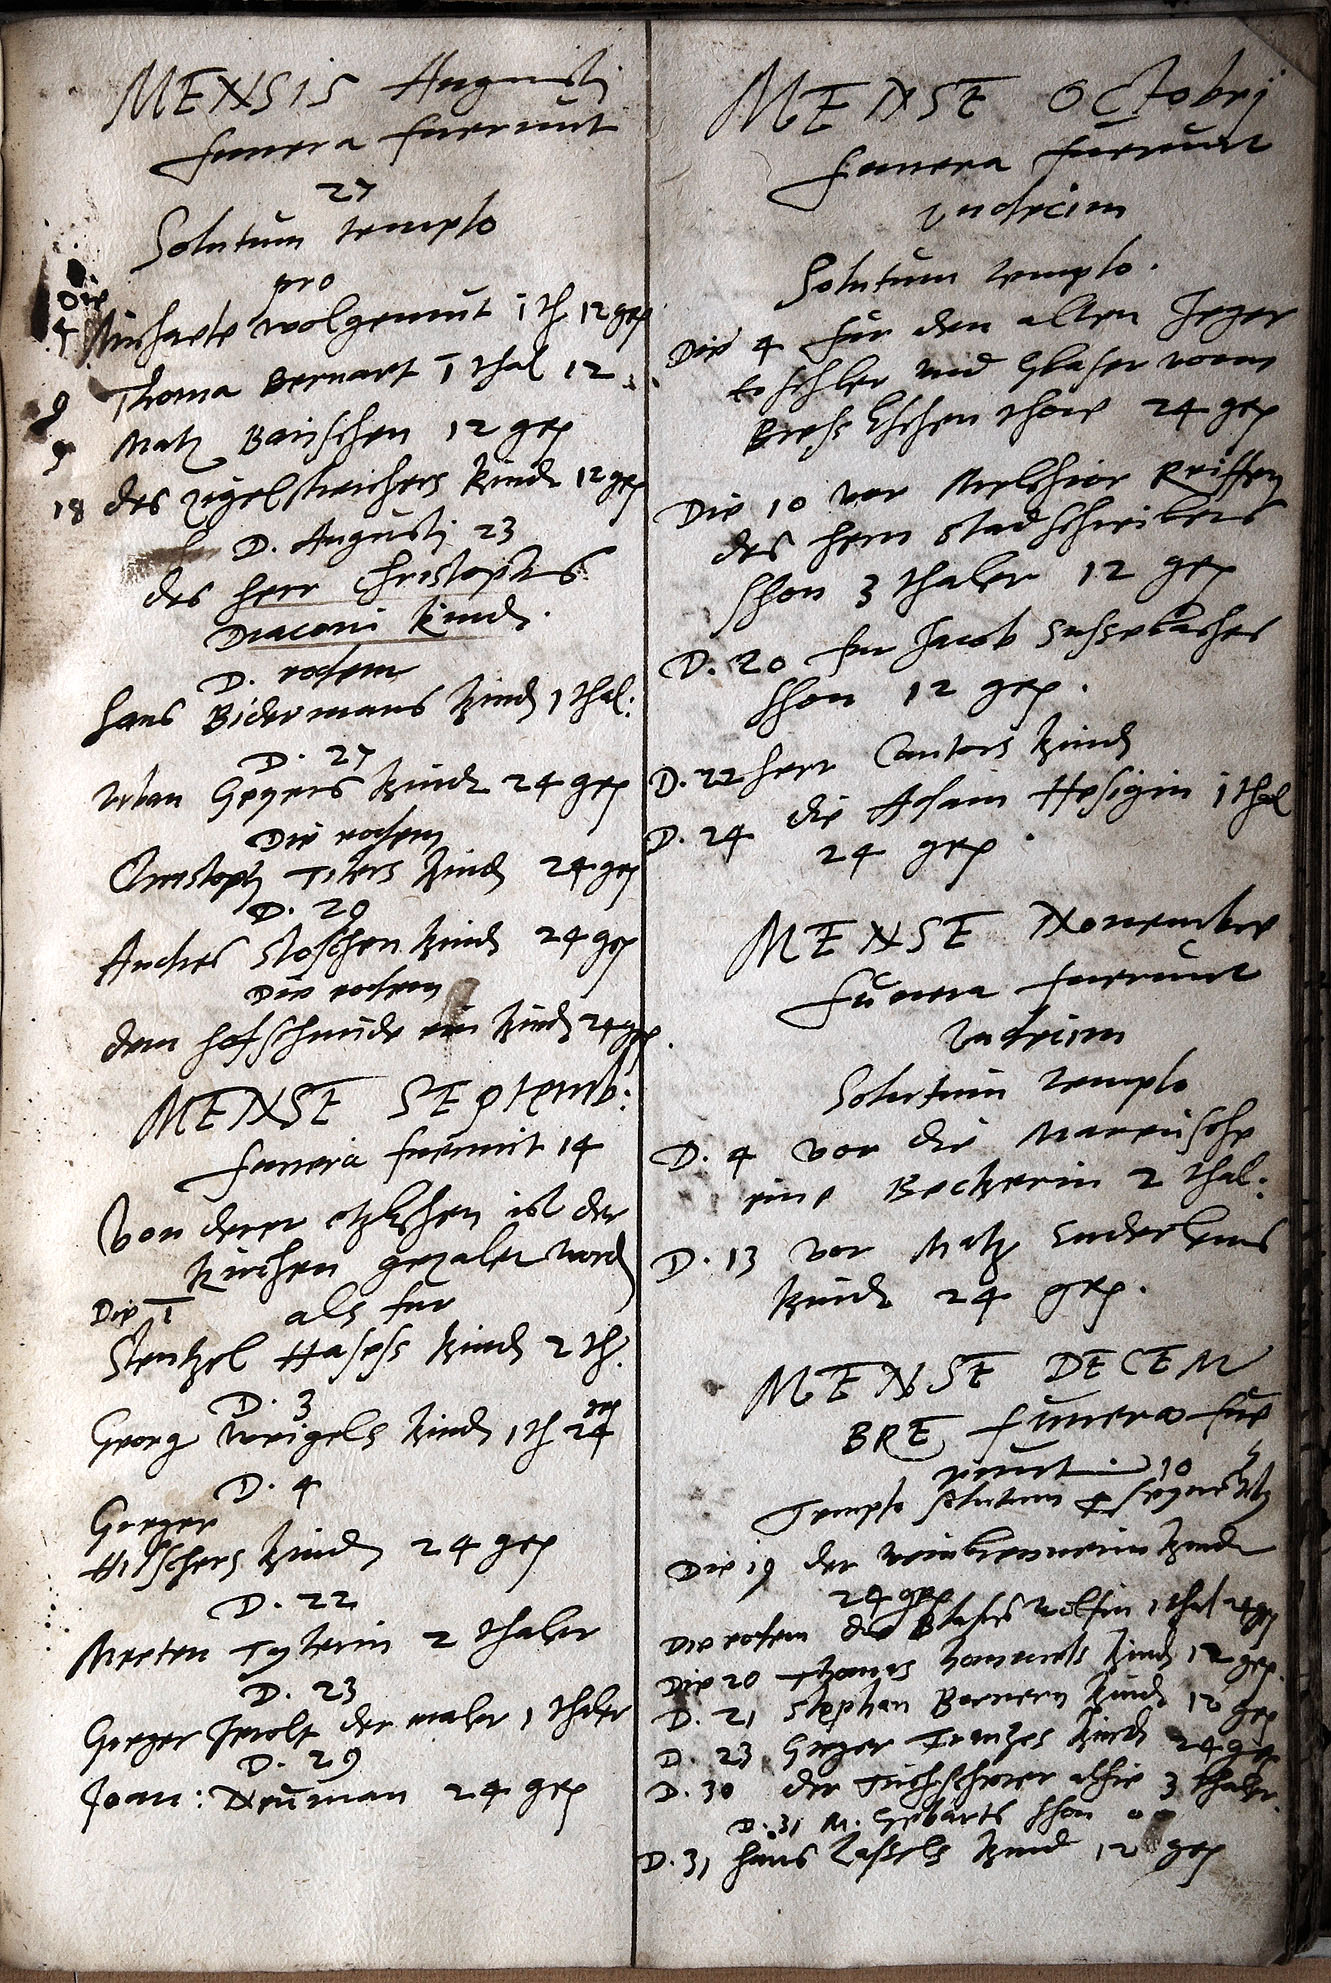 MENSIS Augusti
funera fuerunt
27
Solutum templo
pro
Die
4 Michaele wolgemut 1 th 12 grs
9 Thoma Bernart 1 thal 12
9 Matz Bauschen 12 grs
18 des zigelstreichers Kindt 12 grs
D. Augusti 23
des herr Christophs
Diaconi Kindt.
D. eodem
Hans Bidermans Kindt 1 thal:
D. 27
Urban Geyers Kindt 24 grs
Die eodem
Christoph Titers Kindt 24 grs
D. 29
Andres Stoschen Kindt 24 grs
Die eodem
dem hofschmide ein Kindt 24 grs.
MENSE SEptemb:
funera fuerunt 14
Von derer etzlichen ist der
Kirchen gezalet word
Die 1 als fur
Stentzel Hasess Kindt 2 th.
D. 3
Georg Weigels Kindt 1 th 24 grs
D. 4
Gorger
Hilschers Kindt 24 grs
D. 22
Merten Tylerin 2 thaler
D. 23
Gorger der maler 1 thaler
D. 29
Joan: Neuman 24 grs
MENSE OCtobri
funera fuerunt
undecim
Solutum templo.
Die 4 für den alten Jeger
tischler und Glaser vorm
thore 24 grs
Die 10 vor Melchior
des hern Stadschreibers
Shon 3 thaler 12 grs
D. 20 fur Jacob
Shon 12 grs.
D. 22 herr Cantors Kindt
D. 24 die 1 thal
24 grs.
MENSE Nouembre
funera fuerunt
undecim
Solutum templo
D. 4 vor die
eine Beckerin 2 thal:
D. 13 vor Matz Enderleins
Kindt 24 grs.
MENSE DECEM
BRE funera fue
runt 10
Templo solutum
Die 19 der Kindt
24 grs
Die eodem die 1 thal 24 grs
Die 20 Kindt 12 grs.
D. 21 Stephan Bornern Kindt 12 grs
D. 23 Gorger Frantzes Kindt 24 grs
D. 30 der Tuchscherer 3 thaler.
D. 31 M. Gebarts Shon 00
D. 31 Hans Kindt 12 grs